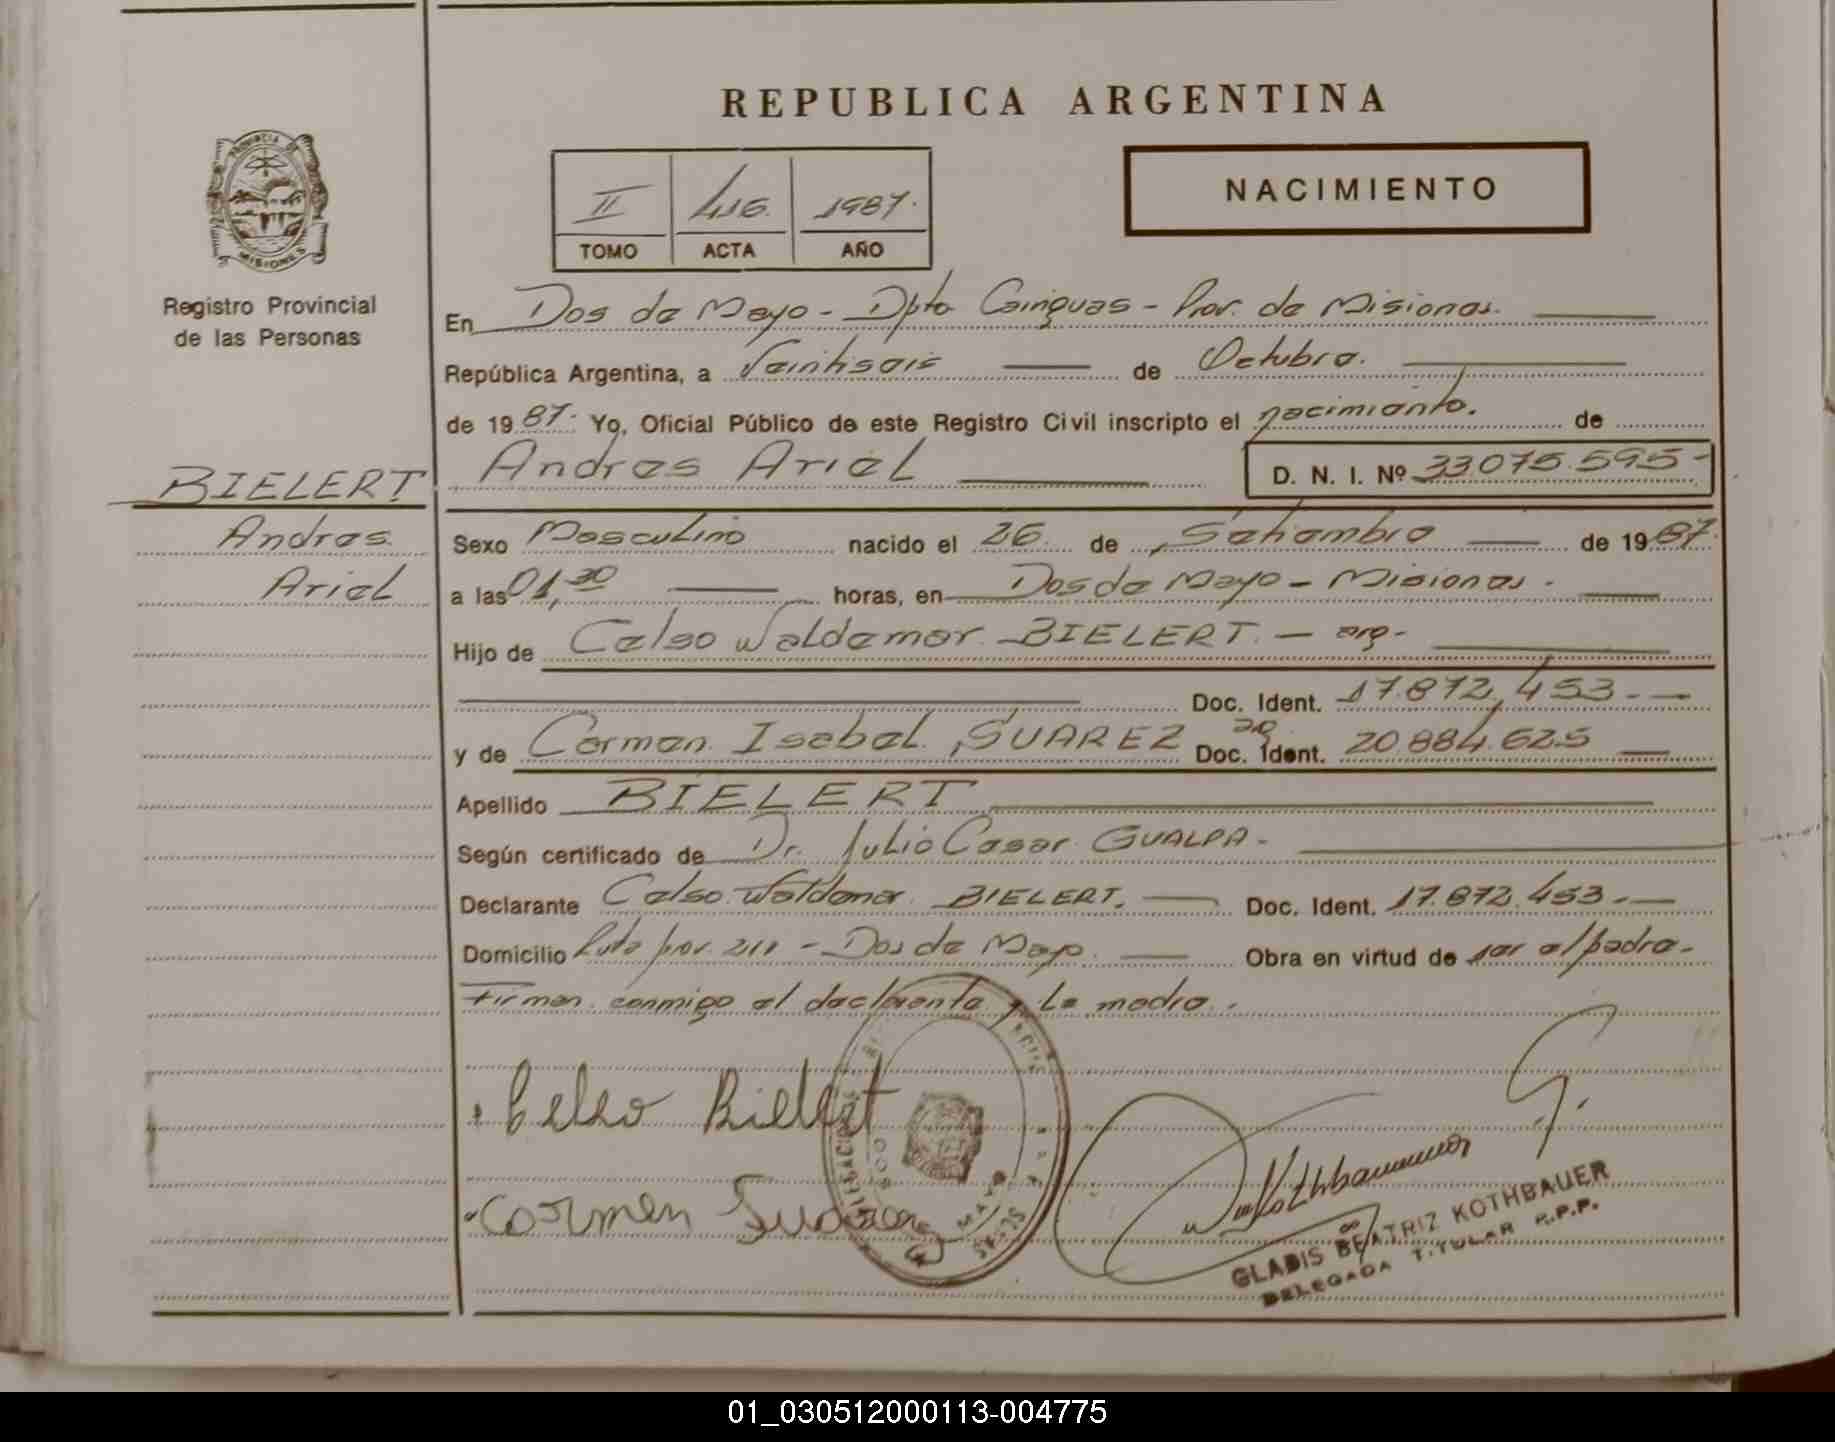 REPUBLICA ARGENTINA
PROVINCIA DE
MISIONES
Registro Provincial
de las Personas
II 416. 1987.
TOMO ACTA AÑO
NACIMIENTO
En Dos de Mayo - Dpto Cainguas - Prov. de Misiones.
República Argentina, a Veintiseis de Octubre.
de 1987. Yo, Oficial Público de este Registro Civil inscripto el nacimiento. de
Andres Ariel D. N. I. Nº 33.075.595-
BIELERT
Andres
Ariel
Sexo Masculino nacido el 26 de Setiembre de 1987.
a las 01,30 horas, en Dos de Mayo - Misiones.
Hijo de Celso Waldemar BIELERT. - arg-
Doc. Ident. 17.872,453.-
y de Carmen Isabel SUAREZ arg. Doc. Ident. 20.884.625
Apellido BIELERT
Según certificado de Dr. Julio Cesar GUALPA-
Declarante Celso Waldemar BIELERT. Doc. Ident. 17.872.453.-
Domicilio Ruta prov 211 - Dos de Mayo. Obra en virtud de ser el padre-
Firman conmigo el declarante y la madre.
Celso Bielert
Carmen Suarez
Kothbauer
GLADIS BEATRIZ KOTHBAUER
DELEGADA TITULAR R.P.P.
01_030512000113-004775